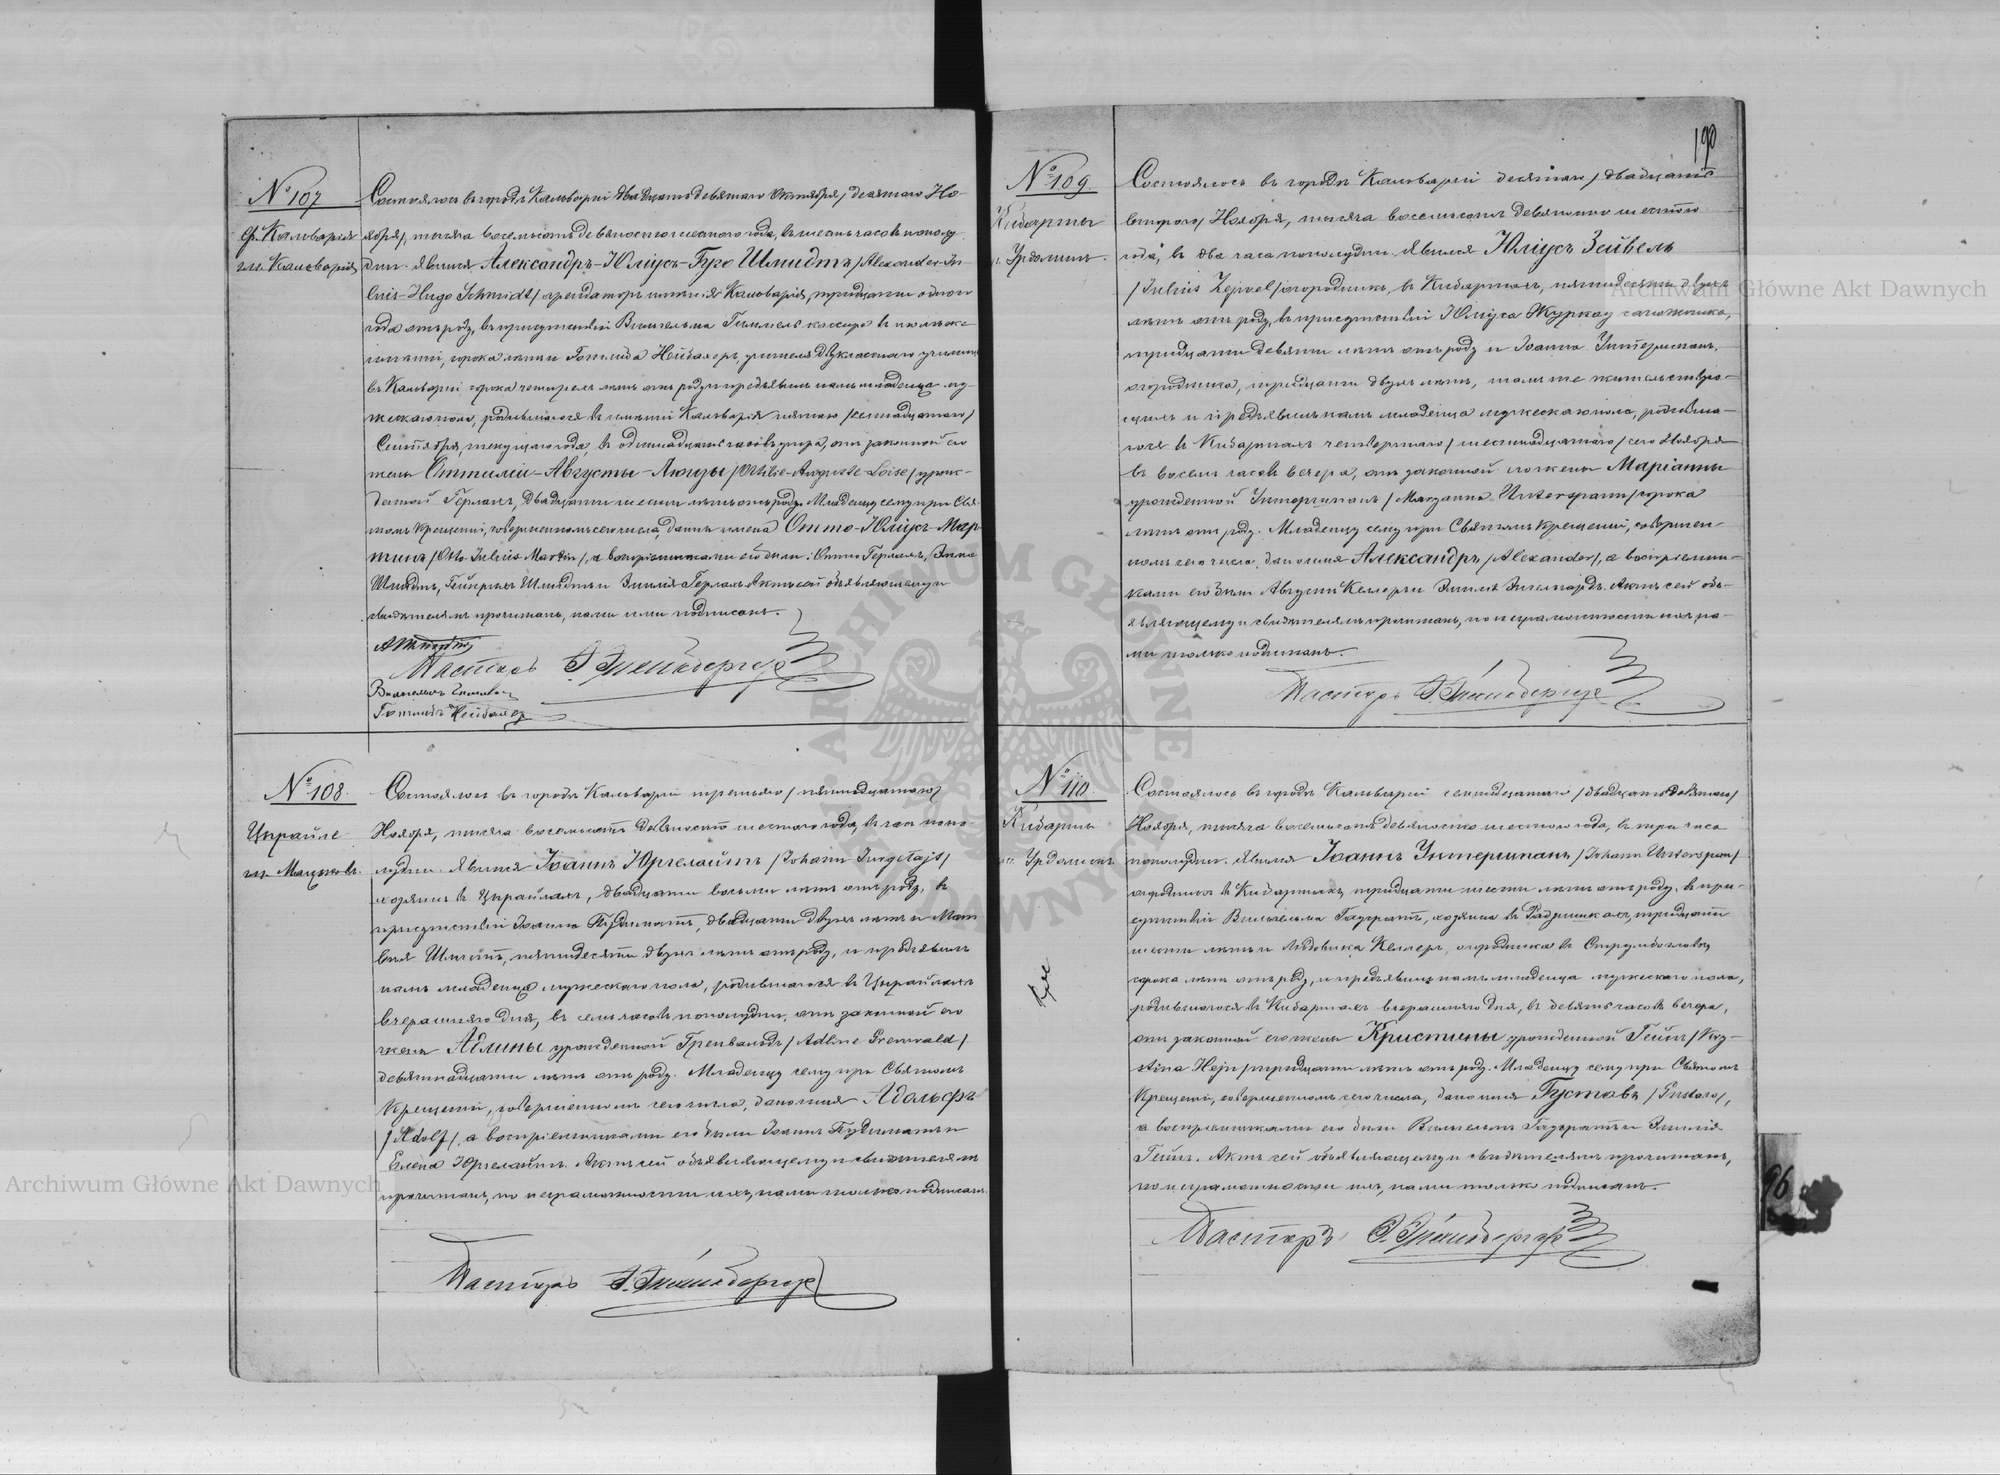 190
№ 107
Ф. Кальварія
гм. Кальварія
Состоялось въ городѣ Кальваріи двадцать девятаго Октября / десятаго Но-
ября /, тысяча восемьсотъ девяносто шестаго года, въ шесть часовъ пополу-
дни. Явился Александръ-Юліусъ-Гуго Шмидтъ / Alexander-Ju-
lius-Hugo Schmidt / арендаторъ имѣнія Кальварія, тридцати одного
года отъ роду, въ присутствіи Вильгельма
имѣніи, сорока лѣтъ и Готлиба Нейбахеръ, учителя двукласснаго училища
въ Кальваріи сорока четырехъ лѣтъ отъ роду и предъявилъ намъ младенца му-
жескаго пола, родившагося въ имѣніи Кальварія пятаго / семнадцатаго /
Сентября, текущаго года, въ одиннадцать часовъ утра, отъ законной его
жены Оттиліи-Августы-Люизы / Ottilie-Auguste Loise / урож-
денной Герланъ, двадцати шести лѣтъ отъ роду. Младенцу сему при Свя-
томъ Крещеніи, совершенномъ сего числа, даны имена Отто-Юліусъ-Мар-
тинъ / Otto Julius Martin /, а воспріемниками его были: Отто Герланъ, Анна
Шмидтъ, Гейнрихъ Шмидтъ и Эмилія Герланъ. Актъ сей объявляющему и
свидѣтелямъ прочитанъ, нами и ими подписанъ.
Пасторъ
Готлибъ Нейбахеръ
№ 108.
Цирайле
гм. Мацковъ.
Состоялось въ городѣ Кальваріи третьяго / пятнадцатаго /
Ноября, тысяча восемьсотъ девяносто шестаго года, въ часъ попо-
лудни. Явился Іоаннъ Юргелайтъ / Johann Jurgelajt /
хозяинъ въ Цирайляхъ, двадцати восьми лѣтъ отъ роду, въ
присутствіи Іоанна Пудиматъ, двадцати двухъ лѣтъ и Мат-
вѣя Шмитъ, пятидесяти двухъ лѣтъ отъ роду, и предъявилъ
намъ младенца мужескаго пола, родившагося въ Цирайляхъ
вчерашняго дня, въ семь часовъ пополудни, отъ законной его
жены Адлины урожденной Гренвальдъ / Adline Grenwald /
девятнадцати лѣтъ отъ роду. Младенцу сему при Святомъ
Крещеніи, совершенномъ сего числа, дано имя Адольфъ
/ Adolf /, а воспріемниками его были Іоаннъ Пудиматъ и
Елена Юргелайтъ. Актъ сей объявляющему и свидѣтелямъ
прочитанъ, по неграмотности ихъ, нами только подписанъ.
Пасторъ
№ 109
Кибарты
гм. Урдоминъ.
Состоялось въ городѣ Кальваріи десятаго / двадцать
втораго / Ноября, тысяча восемьсотъ девяносто шестаго
года, въ два часа пополудни. Явился Юліусъ Зейвель
/ Julius Zejwel / огородникъ, въ Кибартахъ, пятидесяти двухъ
лѣтъ отъ роду, въ присутствіи Юліуса Журкау сапожника,
тридцати девяти лѣтъ отъ роду и Іоанна Унтершпанъ,
огородника, тридцати двухъ лѣтъ, тамъ же жительствую-
щихъ и предъявилъ намъ младенца мужескаго пола, родивша-
гося въ Кибартахъ четвертаго / шестнадцатаго / сего Ноября
въ восемь часовъ вечера, отъ законной его жены Маріанны
урожденной Унтершпанъ / Maryanna Unterspann / сорока
лѣтъ отъ роду. Младенцу сему при Святомъ Крещеніи, совершен-
номъ сего числа, дано имя Александръ / Alexander /, а воспріемни-
ками его были Августъ Келлеръ и Эмилія Актъ сей объ-
являющему и свидѣтелямъ прочитанъ, по неграмотности ихъ, на-
ми только подписанъ.
Пасторъ
№ 110.
Кибарты
гм. Урдоминъ
Состоялось въ городѣ Кальваріи семнадцатаго / двадцать девятаго /
Ноября, тысяча восемьсотъ девяносто шестаго года, въ три часа
пополудни. Явился Іоаннъ Унтершпанъ / Johann Unterspan /
огородникъ въ Кибартахъ, тридцати шести лѣтъ отъ роду, въ при-
сутствіи Вильгельма хозяина въ тридцати
шести лѣтъ и Людовика Келлеръ, огородника въ
сорока лѣтъ отъ роду, и предъявилъ намъ младенца мужескаго пола,
родившагося въ Кибартахъ вчерашняго дня, въ девять часовъ вечера,
отъ законной его жены Кристины урожденной Гейнъ / Kry-
stina Hejn / тридцати лѣтъ отъ роду. Младенцу сему при Святомъ
Крещеніи, совершенномъ сего числа, дано имя Густавъ / Gustaw /,
а воспріемниками его были Вильгельмъ и Эмилія
Гейнъ. Актъ сей объявляющему и свидѣтелямъ прочитанъ,
по неграмотности ихъ, нами только подписанъ.
Пасторъ
96
Archiwum Główne Akt Dawnych
Archiwum Główne Akt Dawnych
ARCHIWUM GŁÓWNE AKT DAWNYCH